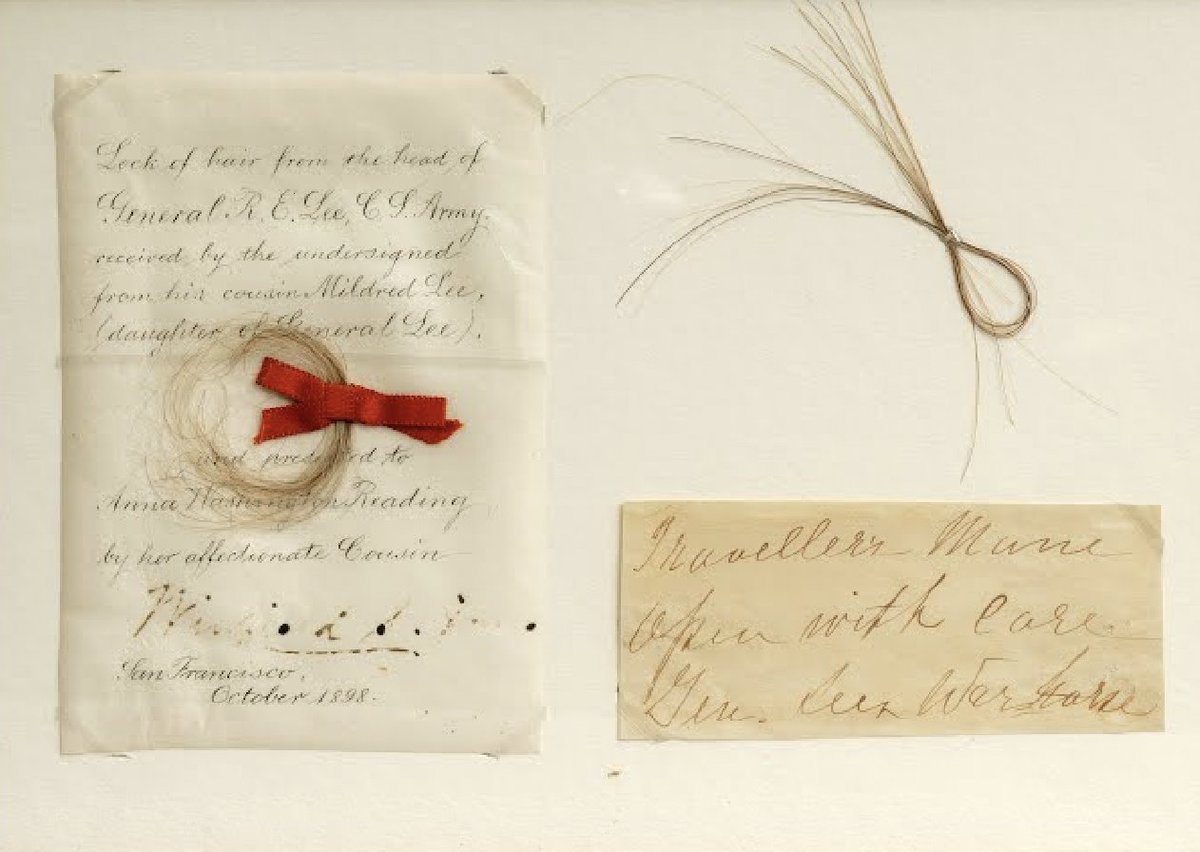 Lock of hair from the head of
General R. E. Lee, C. S. Army.
received by the undersigned
from his cousin Mildred Lee,
(daughter of General Lee).
and presented to
Anna Washington Reading
by her affectionate Cousin
San Francisco,
October 1898.
Travellers Mane
Open with care
Gen. Lees War Horse